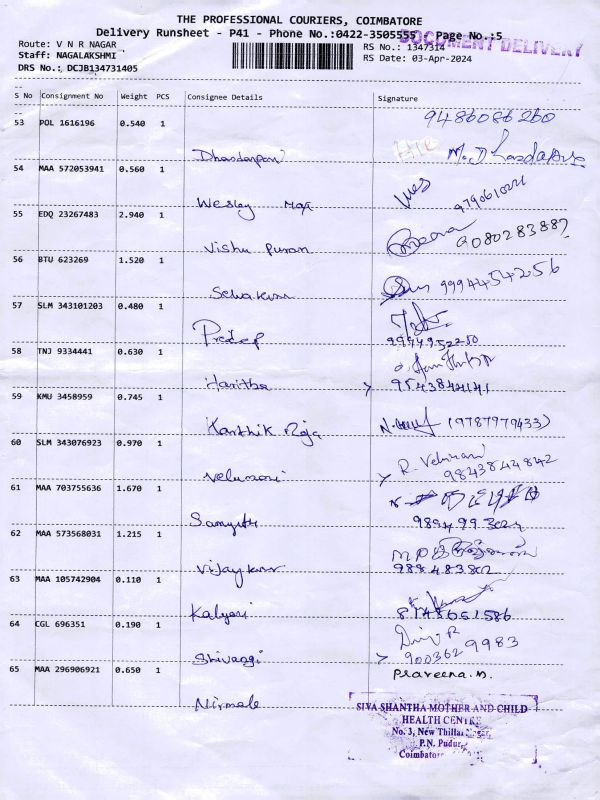 THE PROFESSIONAL COURIERS, COIMBATORE
Delivery Runsheet - P41 - Phone No.:0422-3505555 Page No.:5
DOCUMENT DELIVERY
Route: V N R NAGAR
RS No.: 1347314
Staff: NAGALAKSHMI
RS Date: 03-Apr-2024
DRS No.: DCJB134731405
S No Consignment No Weight PCS Consignee Details Signature
53 POL 1616196 0.540 1 9486086260
Dhandapani
54 MAA 572053941 0.560 1 Wes 9790610221
Wesley
55 EDQ 23267483 2.940 1 9080283887
Vishu Puran
56 BTU 623269 1.520 1 9994454256
Selvakumar
57 SLM 343101203 0.480 1
Pradeep 9994952250
58 TNJ 9334441 0.630 1
Haritha 9543842141
59 KMU 3458959 0.745 1 (9787979433)
Karthik Raja
60 SLM 343076923 0.970 1 R. Velumani
Velumani 9843844842
61 MAA 703755636 1.670 1
62 MAA 573568031 1.215 1
Vijay Kumar
63 MAA 105742904 0.110 1
Kalyani 8748651586
64 CGL 696351 0.190 1
Shivangi 9003629983
65 MAA 296906921 0.650 1 Praveena.M.
Nirmala
SIVA SHANTHA MOTHER AND CHILD
HEALTH CENTRE
No. 3, New Thillai Nagar,
P.N. Pudur,
Coimbatore